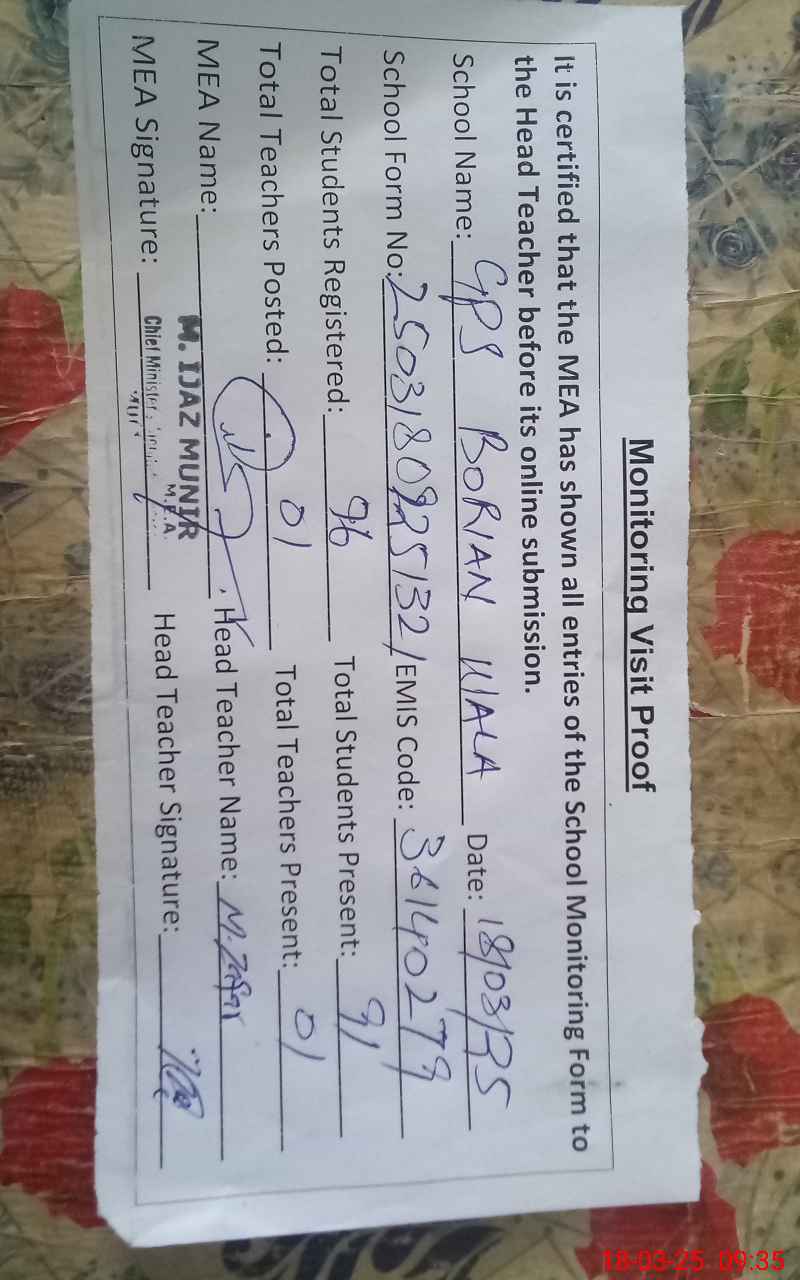 Monitoring Visit Proof
It is certified that the MEA has shown all entries of the School Monitoring Form to
the Head Teacher before its online submission.
School Name: GPS BORIAN WALA Date: 18/03/25
School Form No: EMIS Code: 36140279
Total Students Registered: 96 Total Students Present: 91
Total Teachers Posted: 01 Total Teachers Present: 01
MEA Name: M. IJAZ MUNIR Head Teacher Name: M. Zafar
M.E.A.
MEA Signature: Chief Minister's Head Teacher Signature:
18-03-25 09:35